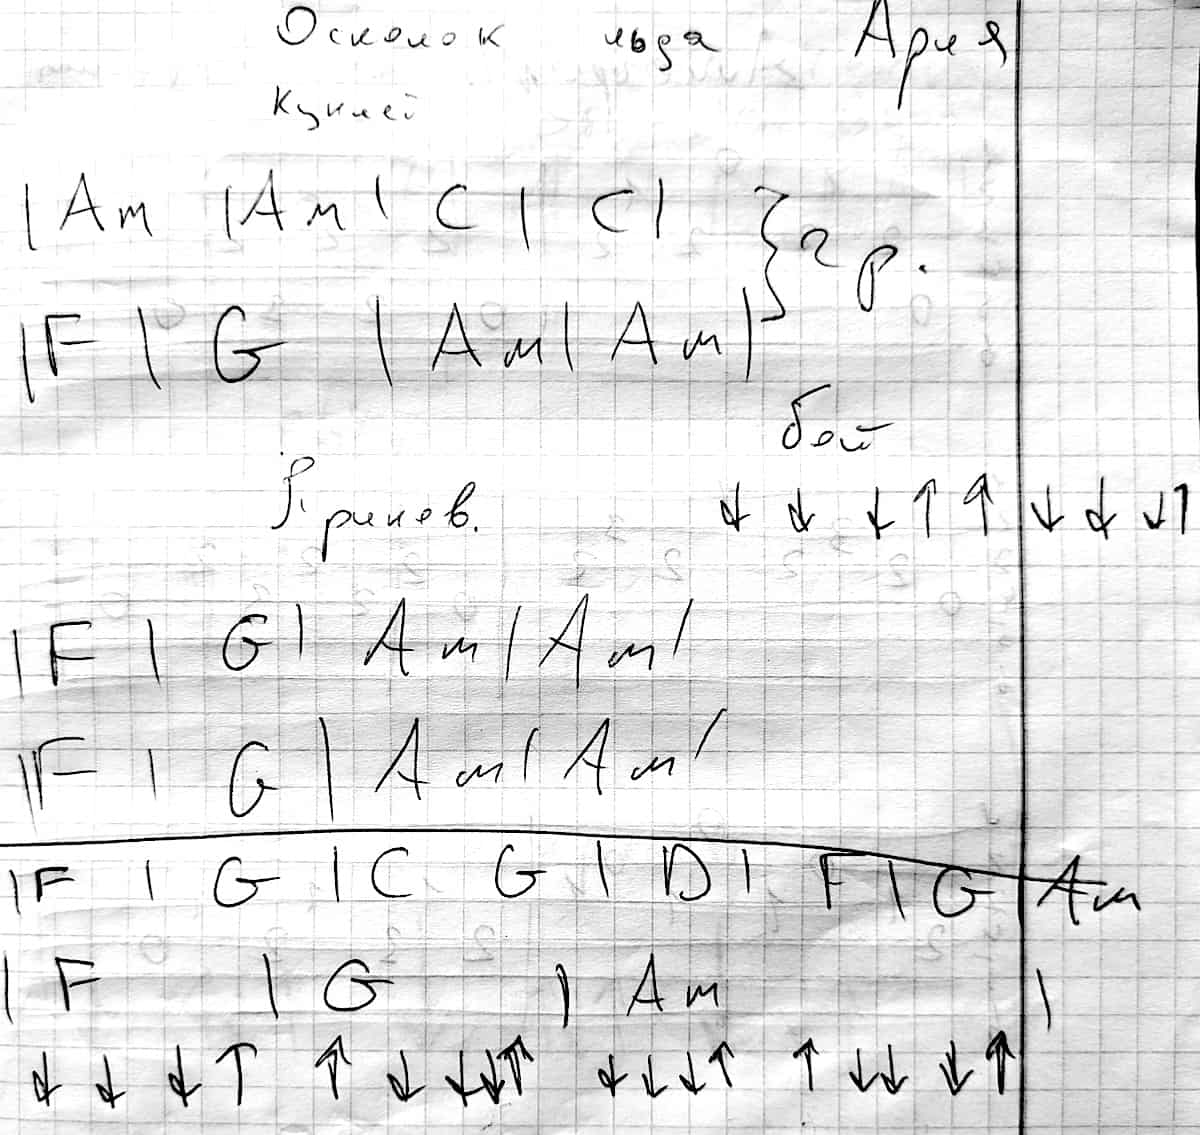 Осколок льда Ария
Куплет
| Am | Am | C | C | } 2 р.
| F | G | Am | Am |
бой
Припев. ↓ ↓ ↓ ↑ ↑ ↓ ↓ ↓ ↑
| F | G | Am | Am |
| F | G | Am | Am |
| F | G | C G | D | F | G | Am
| F | G | Am |
↓ ↓ ↓ ↑ ↑ ↓ ↓ ↓ ↑ ↓ ↓ ↓ ↑ ↑ ↓ ↓ ↓ ↑